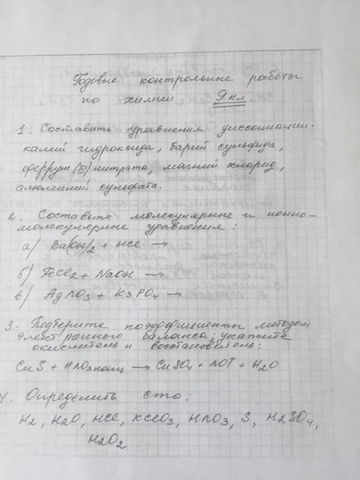 Годовые контрольные работы
по химии 9 кл
1. Составить уравнения диссоциации:
калий гидроксида, барий сульфида,
феррум (III) нитрата, магний хлорид,
алюминий сульфата.
2. Составьте молекулярные и ионно-
молекулярные уравнения:
а) Ba(OH)2 + HCl →
б) FeCl2 + NaOH →
в) AgNO3 + K3PO4 →
3. Подберите коэффициенты методом
электронного баланса, укажите
окислитель и восстановитель:
CuS + HNO3 конц → CuSO4 + NO↑ + H2O
4. Определить с.о.:
H2, H2O, HCl, KClO3, HNO3, S, H2SO4,
H2O2